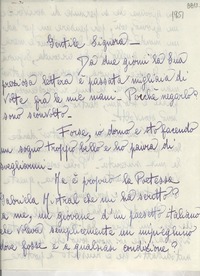 1951
Gentile Signora—
Da due giorni la Sua
preziosa lettera è passata migliaia di
volte fra le mie mani. Perché negarlo?
sono
Forse, io dormo e sto facendo
un sogno troppo bello e ho paura di
svegliarmi.
Ma è proprio la Poetessa
Gabriela Mistral che mi ha scritto?
a me, un giovane d'un paesetto italiano
che voleva semplicemente un impieghino
dove fosse e a qualsiasi condizione?